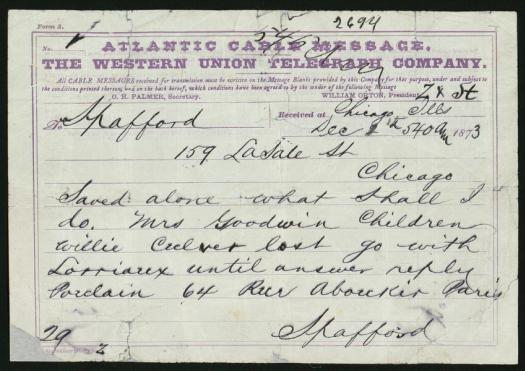 Form 2.
2694
No. 1
ATLANTIC CABLE MESSAGE.
THE WESTERN UNION TELEGRAPH COMPANY.
All CABLE MESSAGES received for transmission must be written on the Message Blanks provided by this Company for that purpose, under and subject to
the conditions printed thereon, and on the back hereof, which conditions have been agreed to by the sender of the following Message
O. H. PALMER, Secretary. WILLIAM ORTON, President.
Received at Chicago Ills
To Spafford
Dec 540 am 1873
159 LaSale St
Chicago
Saved alone what shall I
do. Mrs Goodwin Children
Willie Culver lost go with
Lorriaux until answer reply
Porclain 64 Rue Aboukir Paris
Spafford
29
2